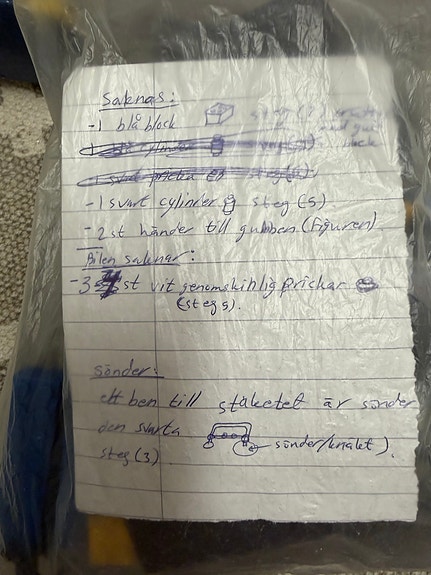 Saknas:
-1 blå block
-1 svart cylinder steg(5)
-2st händer till gubben (figuren)
Bilen saknar:
-3 st vit genomskinlig prickar
(steg 5).
Sönder:
ett ben till staketet är sönder
den svarta sönder/knäckt).
steg(3)